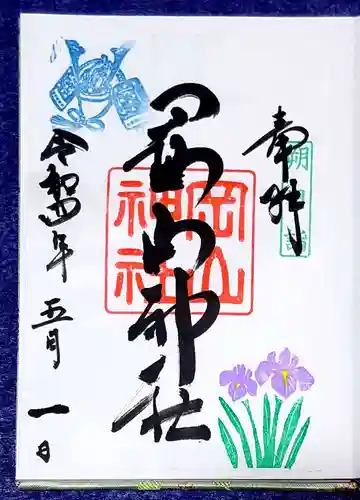 奉拝
朔日詣
岡山神社
岡山神社
令和四年 五月 一日